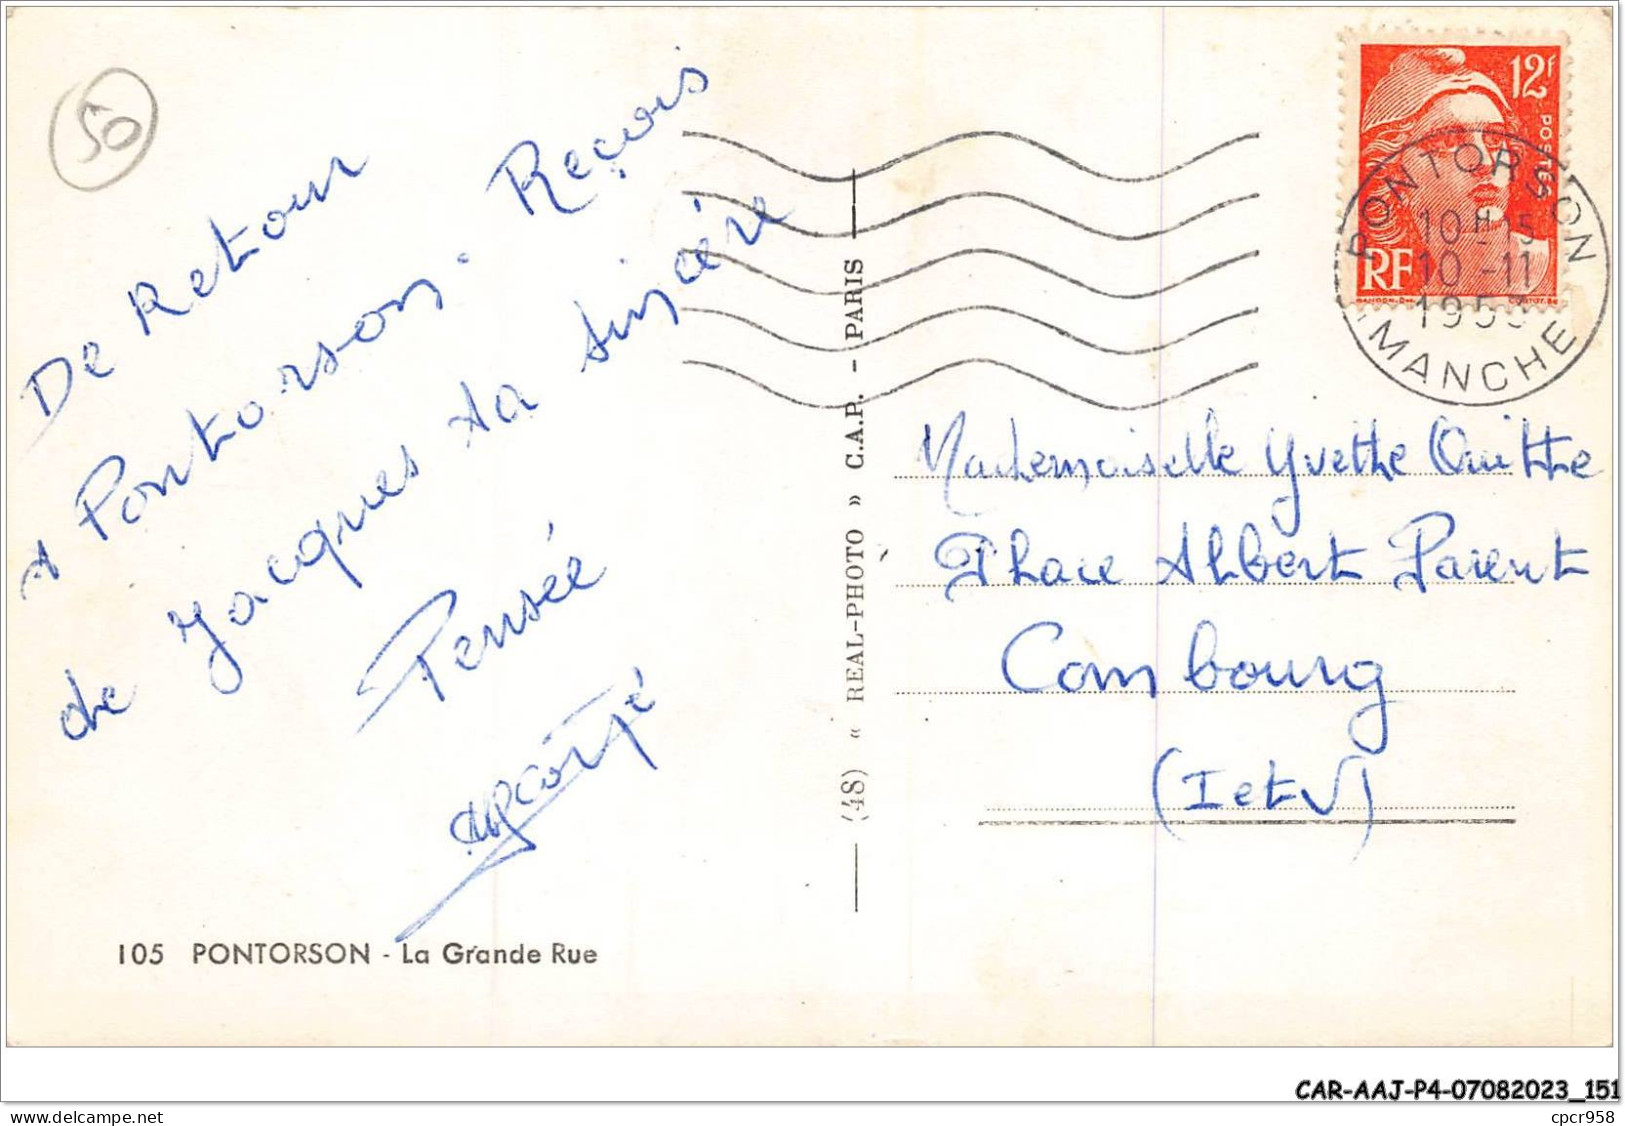 50
De Retour
a Pontorson. Reçois
de Jacques ta sincère
Pensée
105 PONTORSON - La Grande Rue
(4S) « REAL-PHOTO » C.A.P. - PARIS
12F
POSTES
RF
PONTORSON
10H-15
10-11
MANCHE
Mademoiselle Yvette Ouitte
Place Albert Parent
Combourg
(I et V)
CAR-AAJ-P4-07082023_151
www.delcampe.net
cpcr958